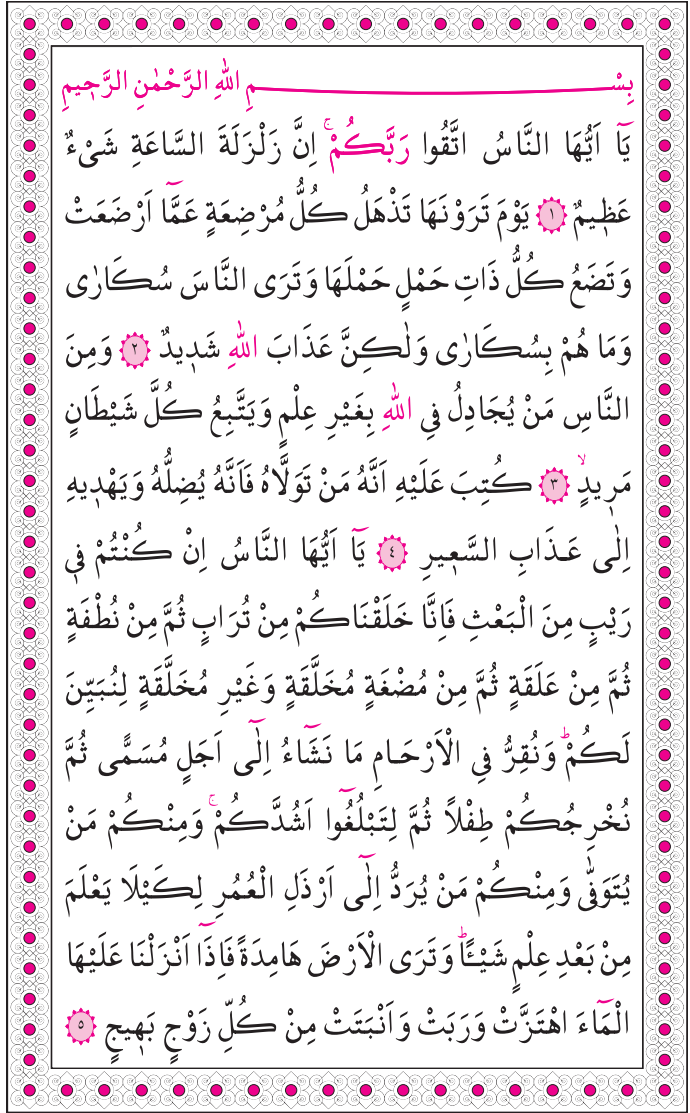 بِسْمِ اللهِ الرَّحْمٰنِ الرَّحٖيمِ
يَٓا اَيُّهَا النَّاسُ اتَّقُوا رَبَّكُمْۚ اِنَّ زَلْزَلَةَ السَّاعَةِ شَیْءٌ
عَظٖيمٌ ﴿١﴾ يَوْمَ تَرَوْنَهَا تَذْهَلُ كُلُّ مُرْضِعَةٍ عَمَّٓا اَرْضَعَتْ
وَتَضَعُ كُلُّ ذَاتِ حَمْلٍ حَمْلَهَا وَتَرَى النَّاسَ سُكَارٰى
وَمَا هُمْ بِسُكَارٰى وَلٰكِنَّ عَذَابَ اللهِ شَدٖيدٌ ﴿٢﴾ وَمِنَ
النَّاسِ مَنْ يُجَادِلُ فِي اللهِ بِغَيْرِ عِلْمٍ وَيَتَّبِعُ كُلَّ شَيْطَانٍ
مَرٖيدٍۙ ﴿٣﴾ كُتِبَ عَلَيْهِ اَنَّهُ مَنْ تَوَلَّاهُ فَاَنَّهُ يُضِلُّهُ وَيَهْدٖيهِ
اِلٰى عَذَابِ السَّعٖيرِ ﴿٤﴾ يَٓا اَيُّهَا النَّاسُ اِنْ كُنْتُمْ فٖي
رَيْبٍ مِنَ الْبَعْثِ فَاِنَّا خَلَقْنَاكُمْ مِنْ تُرَابٍ ثُمَّ مِنْ نُطْفَةٍ
ثُمَّ مِنْ عَلَقَةٍ ثُمَّ مِنْ مُضْغَةٍ مُخَلَّقَةٍ وَغَيْرِ مُخَلَّقَةٍ لِنُبَيِّنَ
لَكُمْؕ وَنُقِرُّ فِي الْاَرْحَامِ مَا نَشَٓاءُ اِلٰٓى اَجَلٍ مُسَمًّى ثُمَّ
نُخْرِجُكُمْ طِفْلاً ثُمَّ لِتَبْلُغُٓوا اَشُدَّكُمْۚ وَمِنْكُمْ مَنْ
يُتَوَفّٰى وَمِنْكُمْ مَنْ يُرَدُّ اِلٰٓى اَرْذَلِ الْعُمُرِ لِكَيْلَا يَعْلَمَ
مِنْ بَعْدِ عِلْمٍ شَيْـًٔاؕ وَتَرَى الْاَرْضَ هَامِدَةً فَاِذَٓا اَنْزَلْنَا عَلَيْهَا
الْمَٓاءَ اهْتَزَّتْ وَرَبَتْ وَاَنْبَتَتْ مِنْ كُلِّ زَوْجٍ بَهٖيجٍ ﴿٥﴾